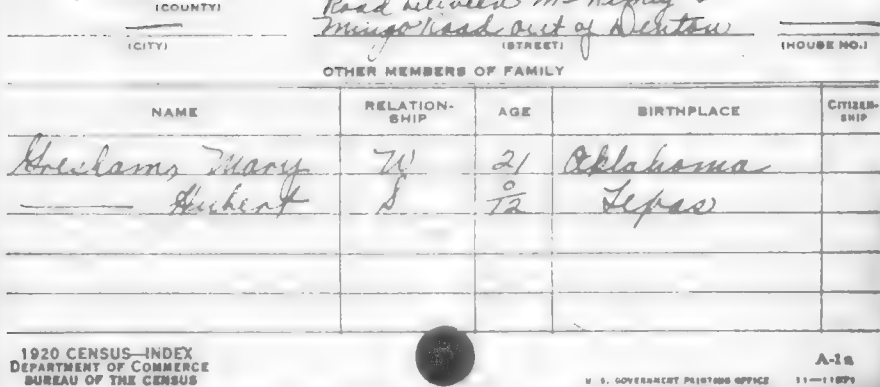 (COUNTY)
Road between McKinney &
Mingo Road out of Denton
(CITY) (STREET) (HOUSE NO.)
OTHER MEMBERS OF FAMILY
NAME RELATION-SHIP AGE BIRTHPLACE CITIZEN-SHIP
Greshams Mary W 21 Oklahoma
—— Hubert S 0/12 Texas
1920 CENSUS—INDEX
DEPARTMENT OF COMMERCE
BUREAU OF THE CENSUS
A-1a
U. S. GOVERNMENT PRINTING OFFICE